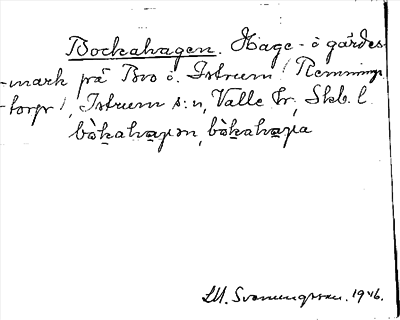 Bockahagen. Hage- o gärdes-
-mark på Bro o. Istrum (Remnings-
-torp), Istrum s:n, Valle hr, Skb. l.
bòkahaɡən, bòkahaɡa
LM. Svenungsson. 1946.